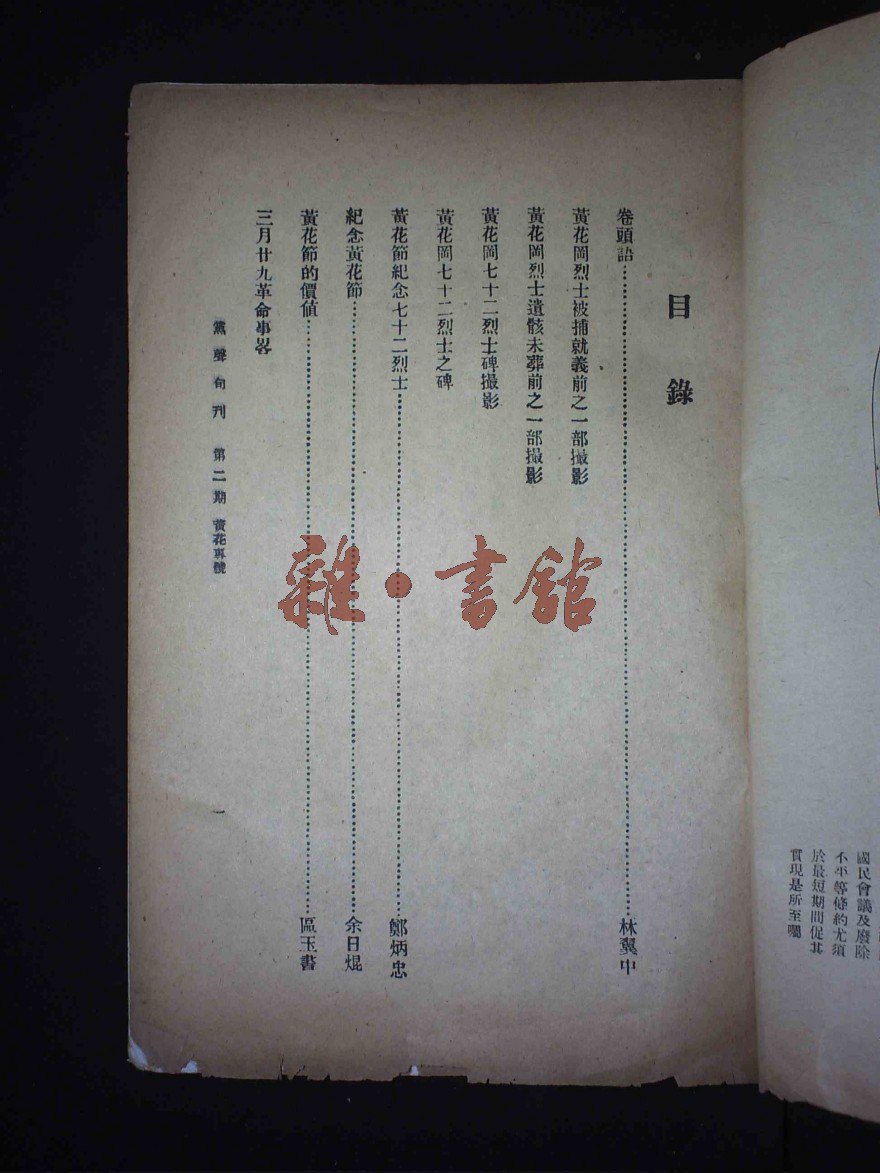 目錄
卷頭語……林翼中
黃花岡烈士被捕就義前之一部撮影
黃花岡烈士遺骸未葬前之一部撮影
黃花岡七十二烈士碑撮影
黃花岡七十二烈士之碑
黃花節紀念七十二烈士……鄭炳忠
紀念黃花節……余日焜
黃花節的價值……區玉書
三月廿九革命事畧
黨聲旬刊 第二期 黃花專號
一
國民會議及廢除
不平等條約尤須
於最短期間促其
實現是所至囑
雜·書館